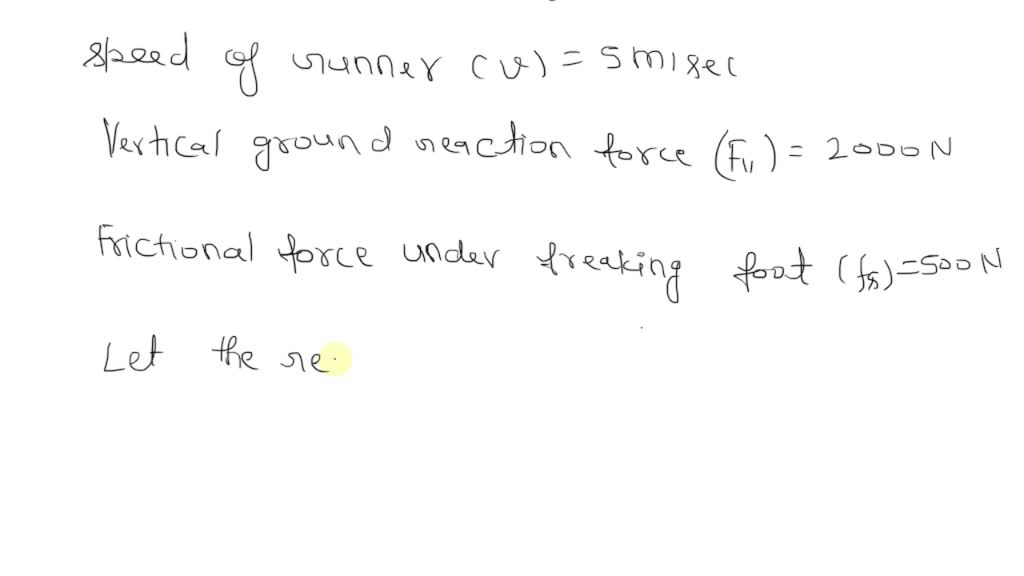 speed of runner (v) = 5 m/sec
Vertical ground reaction force (Fv) = 2000 N
Frictional force under freaking foot (fs) = 500 N
Let the re